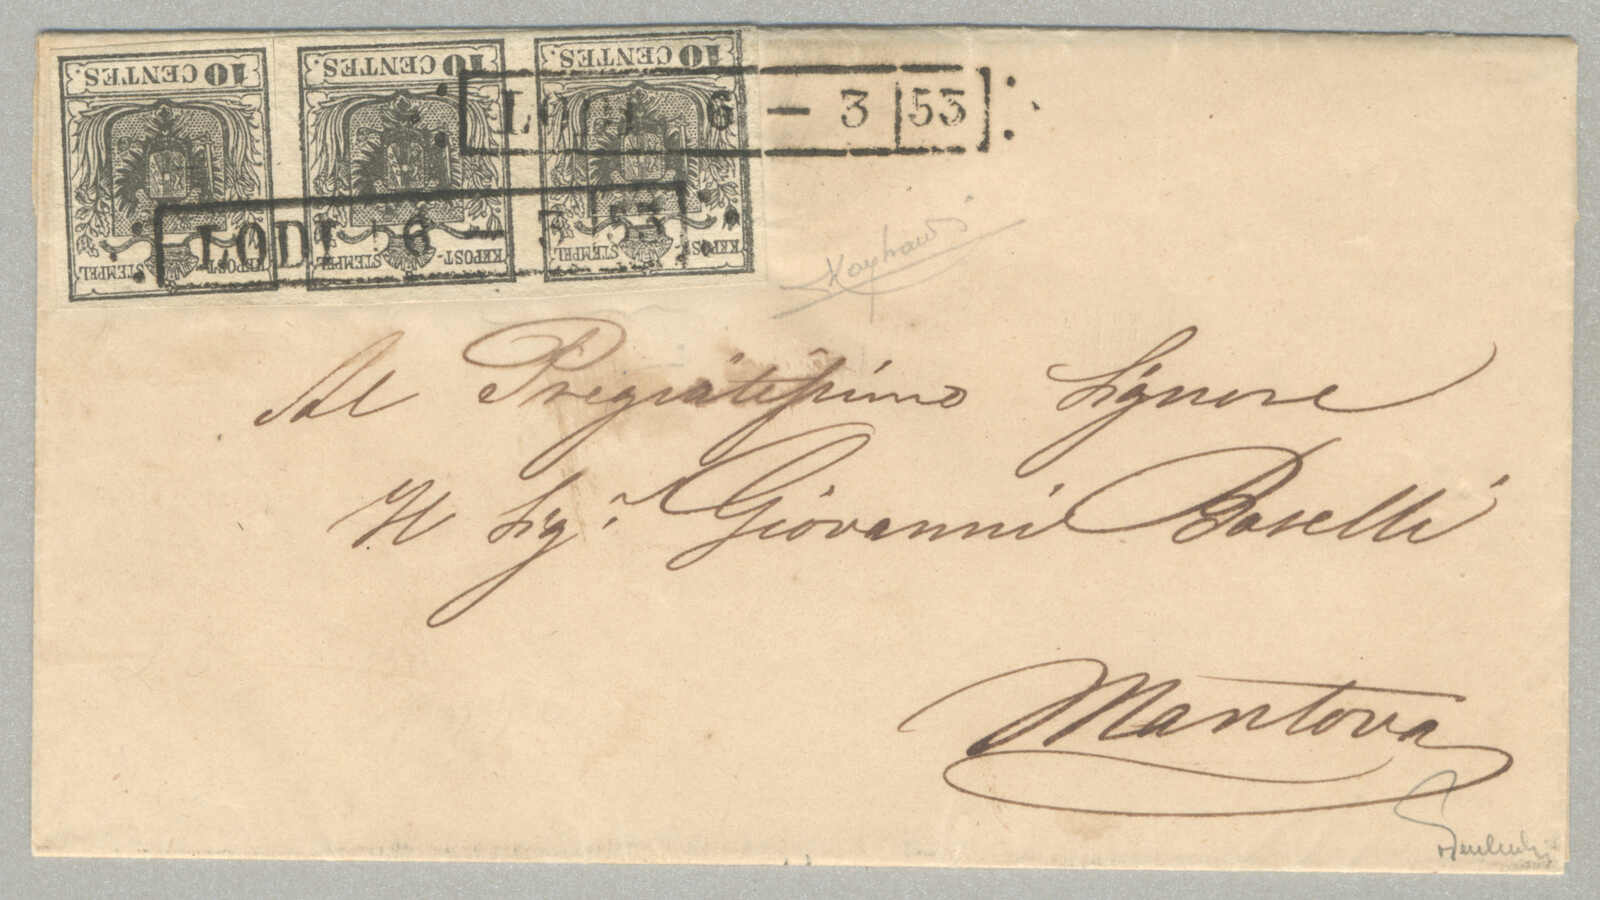 10 CENTES. 10 CENTES. 10 CENTES.
KKPOST-STEMPEL KKPOST-STEMPEL KKPOST-STEMPEL
LODI 6 – 3 53
LODI 6 – 3 53
Al Pregiatissimo Signore
Il Sig.r Giovanni Boselli
Mantova